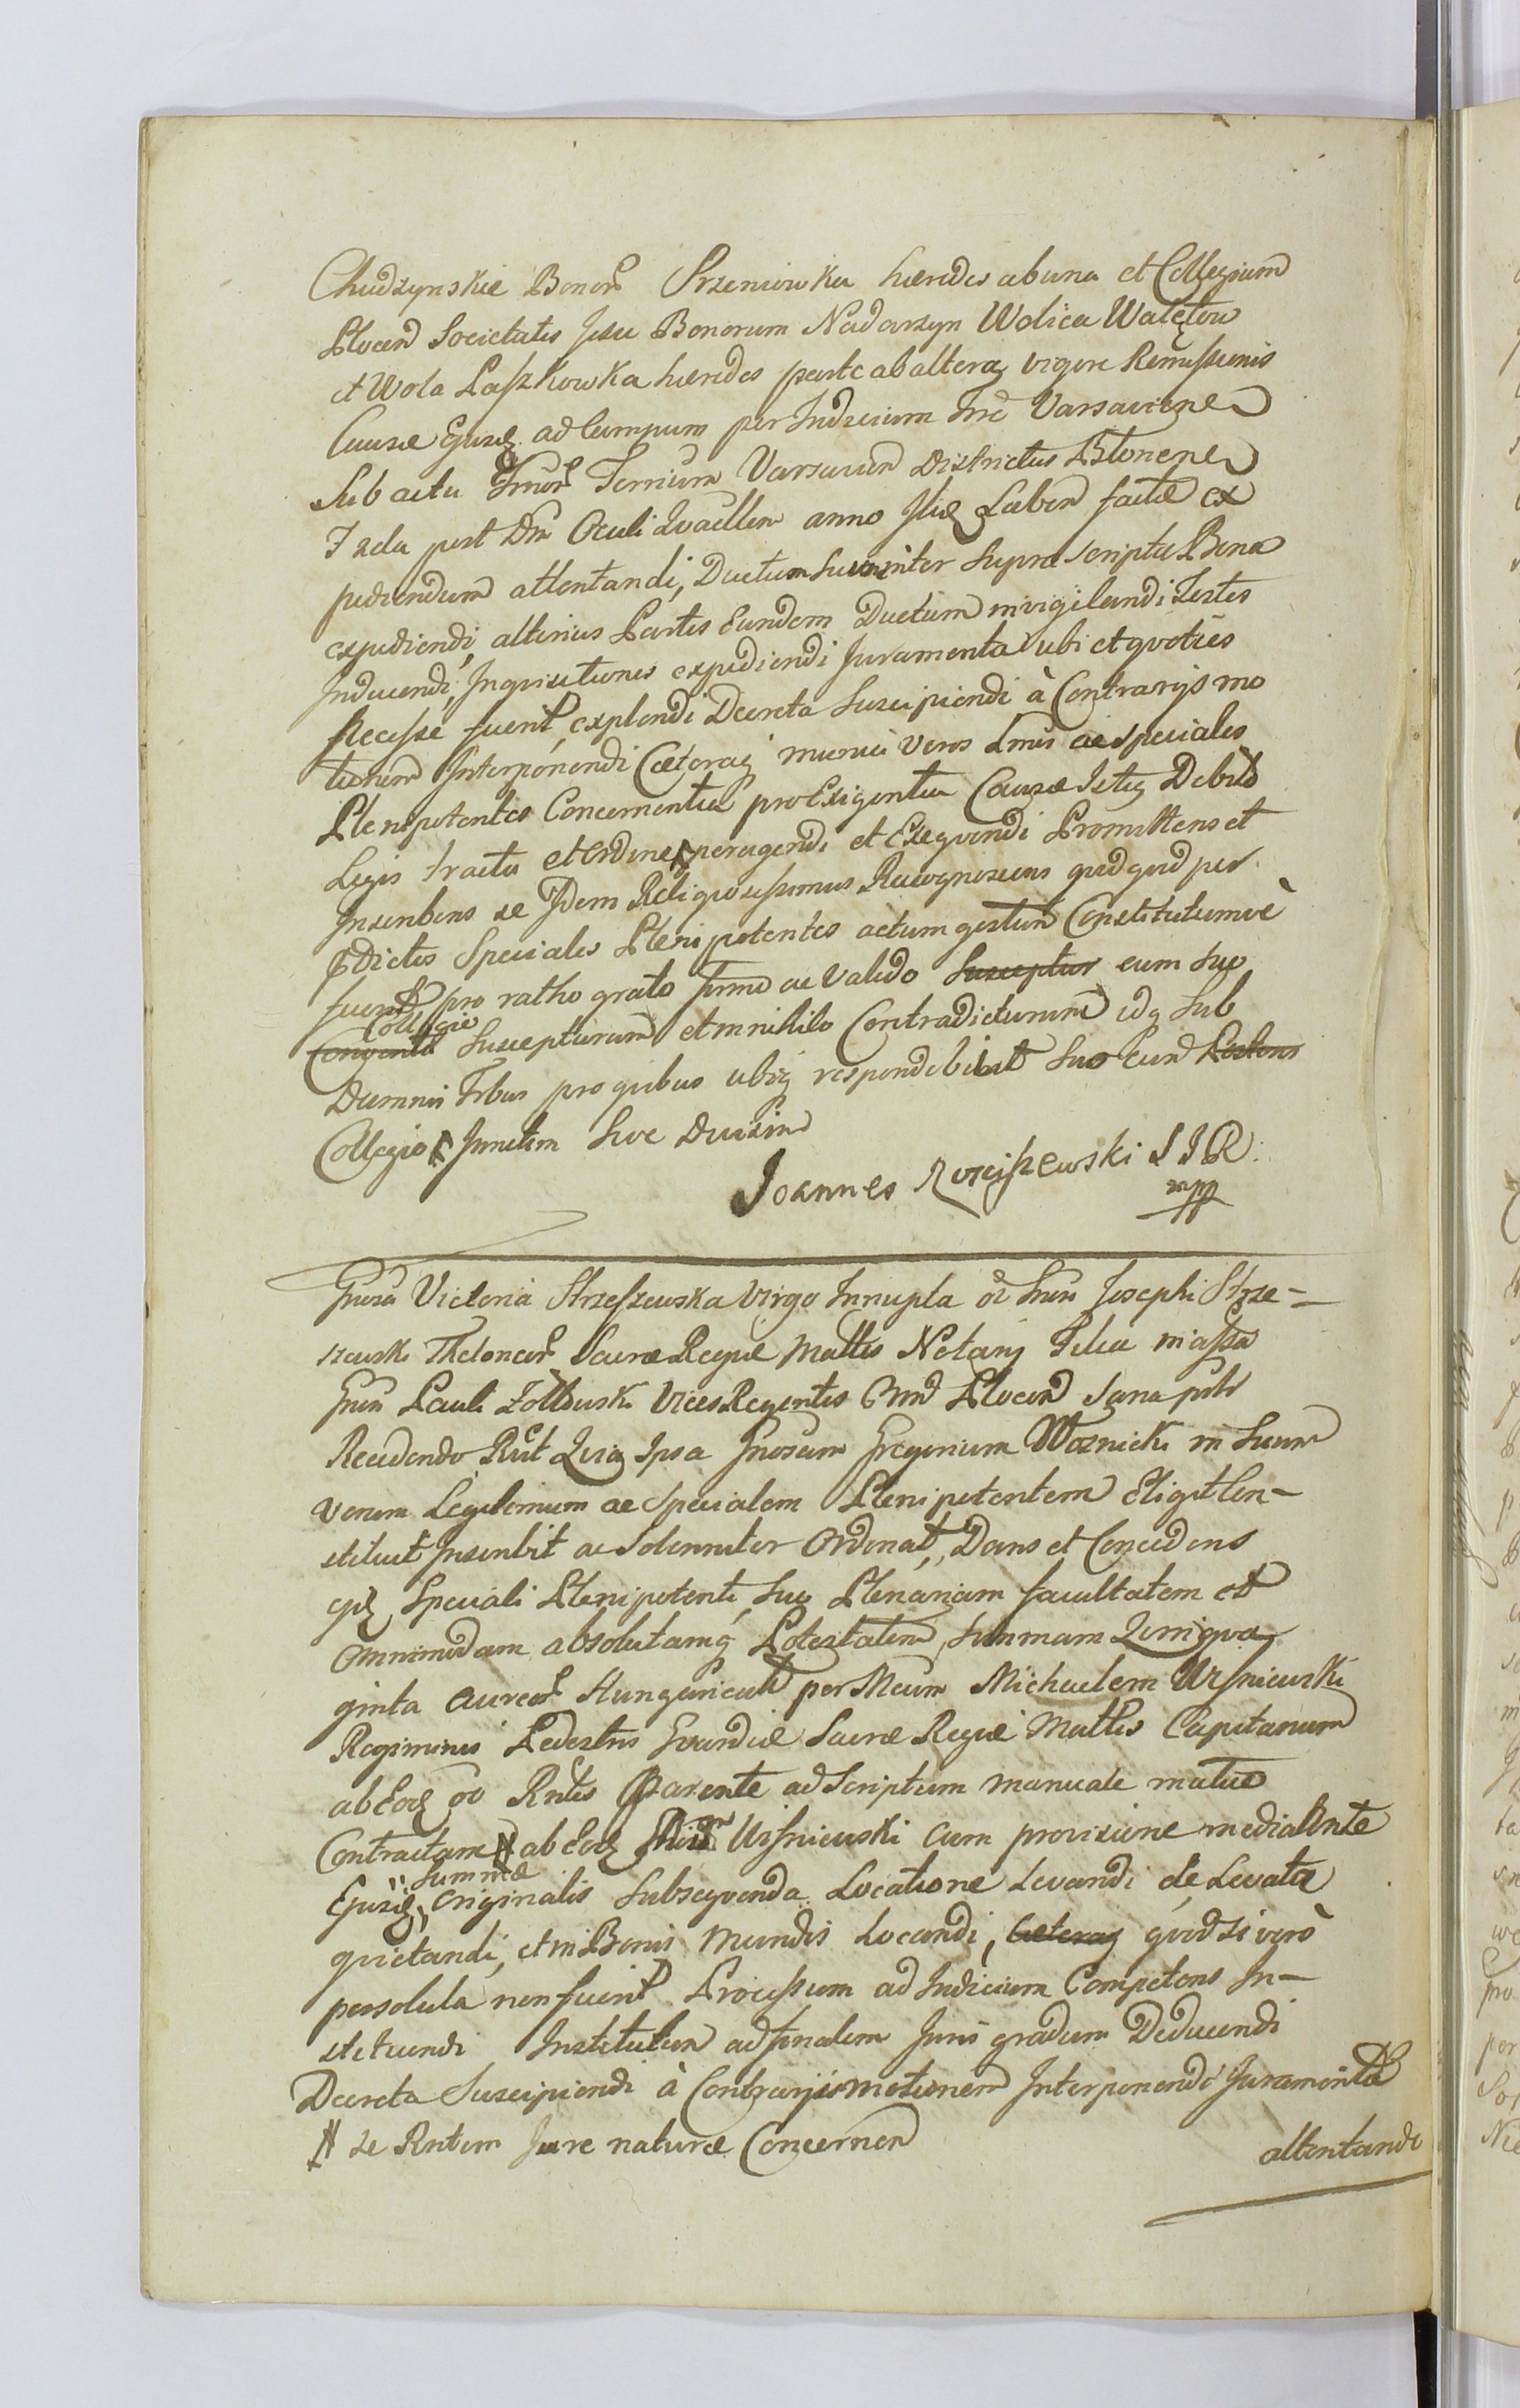 Chudzynskie Bonor Srzeniowka hæredes ab una et Collegium
Plocen Societatis Jesu Bonorum Nadarzyn Wolica Walętow
et Wola Paszkowka hæredes parte ab altera, vigore Remissionis
Causæ Ejusd. ad Campum per Judicium Trrē Varsaviene
Sub actu Trrōr Terrium Varsavien Districtus Blonene
Feria post Dm̄ Oculi Quadlem anno Jtiq Laben factæ ex
pediendum attentandi, Ductum suum inter supra scripta Bona
expediendi, alterius Partis Eundem Ductum invigilandi Testes
Inducendi, Inquisitiones expediendi Juramenta ubi et quoties
Necesse fuerit, explendi Decreta Suscipiendi à Contrarijs mo
tionem Interponendi Cæteraq munia veros Lmos ac speciales
Plenipotentes Concernentia pro Exigentia Causæ Istiq Debito
Legis tractu et ordine peragendi et Exequendi Promittens et
Inscribens se Idem Religiosissimus Recognoscens quod quid per
pdictos Speciales Plenipotentes actum gestum Constitutumvè
fuerit pro ratho grato firmo ac valido Suscepturr cum suo
Conventu Collegio Suscepturum et in nihilo Contradicturum idq sub
Damnis Trbus pro quibus ubiq respondebit suo cum
Collegio Junctim sive Divisim
Joannes Rosciszewski SJR:
mpp
Grosa Victoria Strzeszewska Virgo Innupta ol Grosi Josephi Strze-
szewski Theloneor Sacræ Regiæ Mattis Notarij Filia in assa
Grosi Pauli Zołtowski Vices Regentis Plocen Sana
Recedendo Rūt Quia Ipsa Grosum Gregorium Woznicki in Suum
verum Legitimum ac specialem Plenipotentem Eligit Con-
stituit Inscribit ac Solenniter Ordinat, Dans et Concedens
ejd Speciali Plenipotenti suo Plenariam facultatem et
omnimodam absolutamq Potestatem, Summam Quinqua
ginta aureor Hungaricali per Meum Michaelem Wiszniewski
Regiminis Pedestris Gvardiæ Sacræ Regiæ Mattis Capitanum
ab Eod ol Rntis Parente ad Scriptum manuale mutuo
Contractam # ab Eod Wiszniewski cum provisione mediante
Ejusd summæ originalis subsequenda Locatione Levandi de Levata
quietandi, et in Bonis Mundis Locandi, Cæteraq quod si verò
persoluta non fuerit Processum ad Judicium Competens In-
stituendi Institutum ad finalem Juris gradum Deducendi
Decreta Suscipiendi à Contrarijs motionem Interponendi Juramenta
# se Rntem Jure naturæ Concernen
attentandi